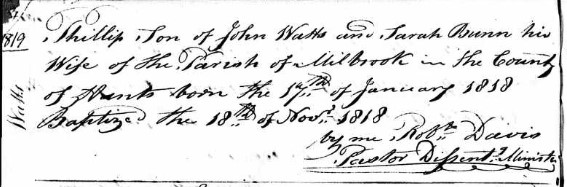 1819
Phillip Son of John Watts and Sarah Bunn his
Wife of the Parish of Milbrook in the County
of Hants born the 17th of January 1818
Watts
Baptized the 18th of Novr 1818
by me Robt Davis
Pastor Dissentg Minister